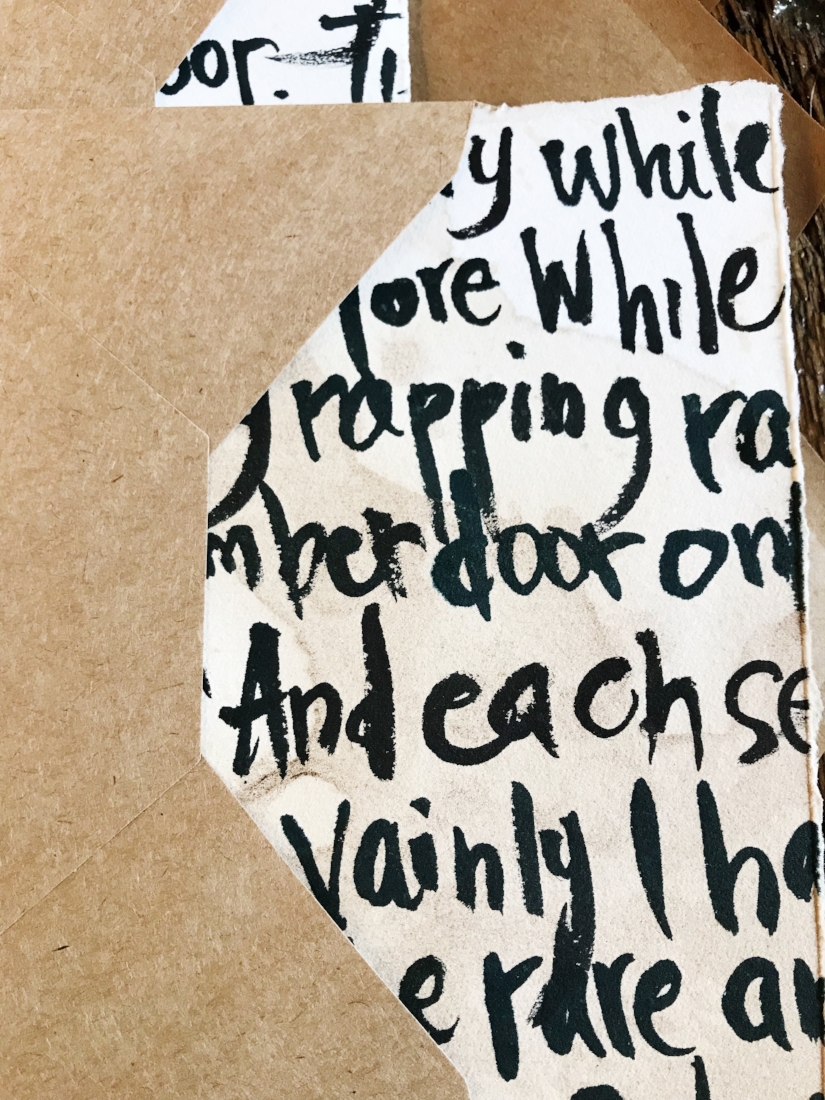 oor. Ti
y while
lore While
g rapping ra
mber door on
And each se
Vainly I ha
e rare an